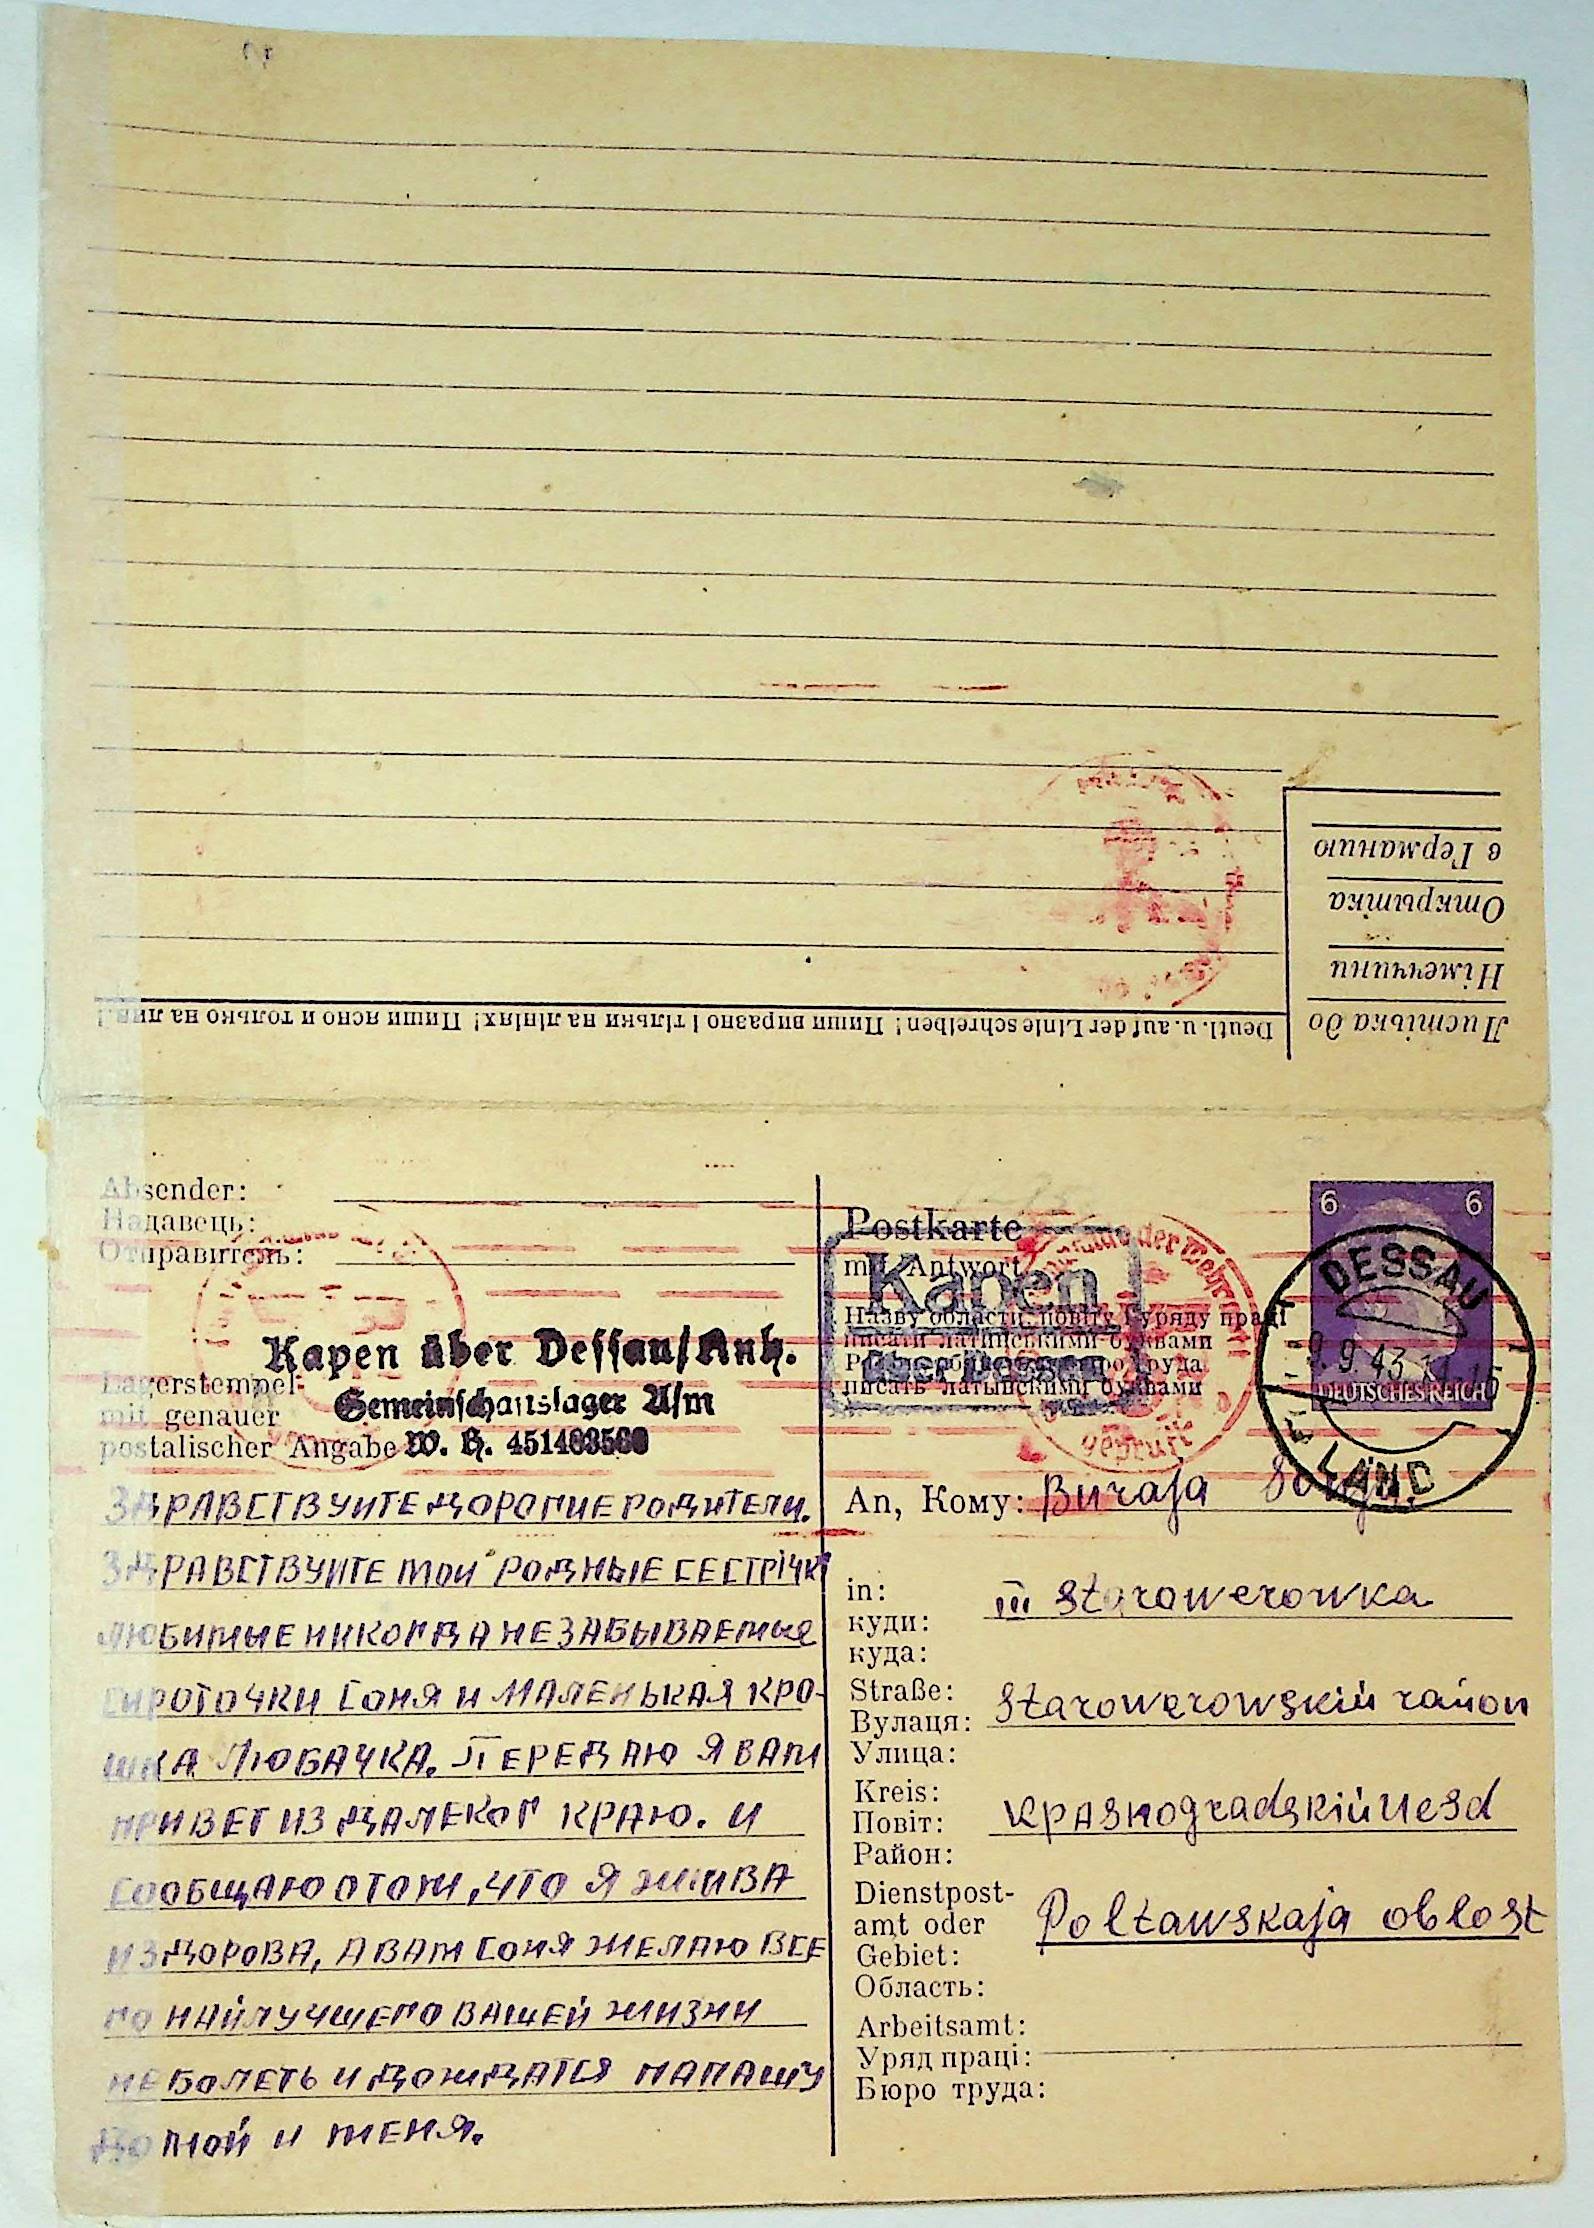 Листівка до
Німеччини
Открытка
в Германию
Deutl. u. auf der Linie schreiben! Пиши виразно і тільки на лініях! Пиши ясно и только на лин.!
Absender:
Надавець:
Отправитель:
Kapen über Dessau/Anh.
Lagerstempel
mit genauer
postalischer Angabe
Gemeinschaftslager A/m
W. H. 451403580
ЗДРАВСТВУИТЕ ДОРОГИЕ РОДИТЕЛИ.
ЗДРАВСТВУИТЕ МОИ РОДНЫЕ СЕСТРІЧКИ
ЛЮБИМЫЕ НИКОГДА НЕ ЗАБЫВАЕМЫЕ
СИРОТОЧКИ СОНЯ И МАЛЕНЬКАЯ КРО-
ШКА ЛЮБАЧКА. ПЕРЕДАЮ Я ВАМ
ПРИВЕТ ИЗ ДАЛЕКОГ КРАЮ. И
СООБЩАЮ О ТОМ, ЧТО Я ЖИВА
И ЗДОРОВА, А ВАМ СОНЯ ЖЕЛАЮ ВСЕ
ГО НАЙЛУЧШЕГО ВАШЕЙ ЖИЗНИ
НЕ БОЛЕТЬ И ДОЖДАТСЯ ПАПАШУ
ДОМОЙ И МЕНЯ.
Postkarte
mit Antwort
Назву области, повіту й уряду праці
писати латинськими буквами
писать латынскими буквами
Kapen
über Dessau
der Wehrmacht
geprüft
6 6
DEUTSCHES REICH
DESSAU
9.9.43.
LAND
An, Кому:
in:
куди:
куда:
III Starowerowka
Straße:
Вулаця:
Улица:
Starowerowskiй raйon
Kreis:
Повіт:
Район:
Kраsноgradsкiй uesd
Dienstpost-
amt oder
Gebiet:
Область:
Poltawskaja oblost
Arbeitsamt:
Уряд праці:
Бюро труда: